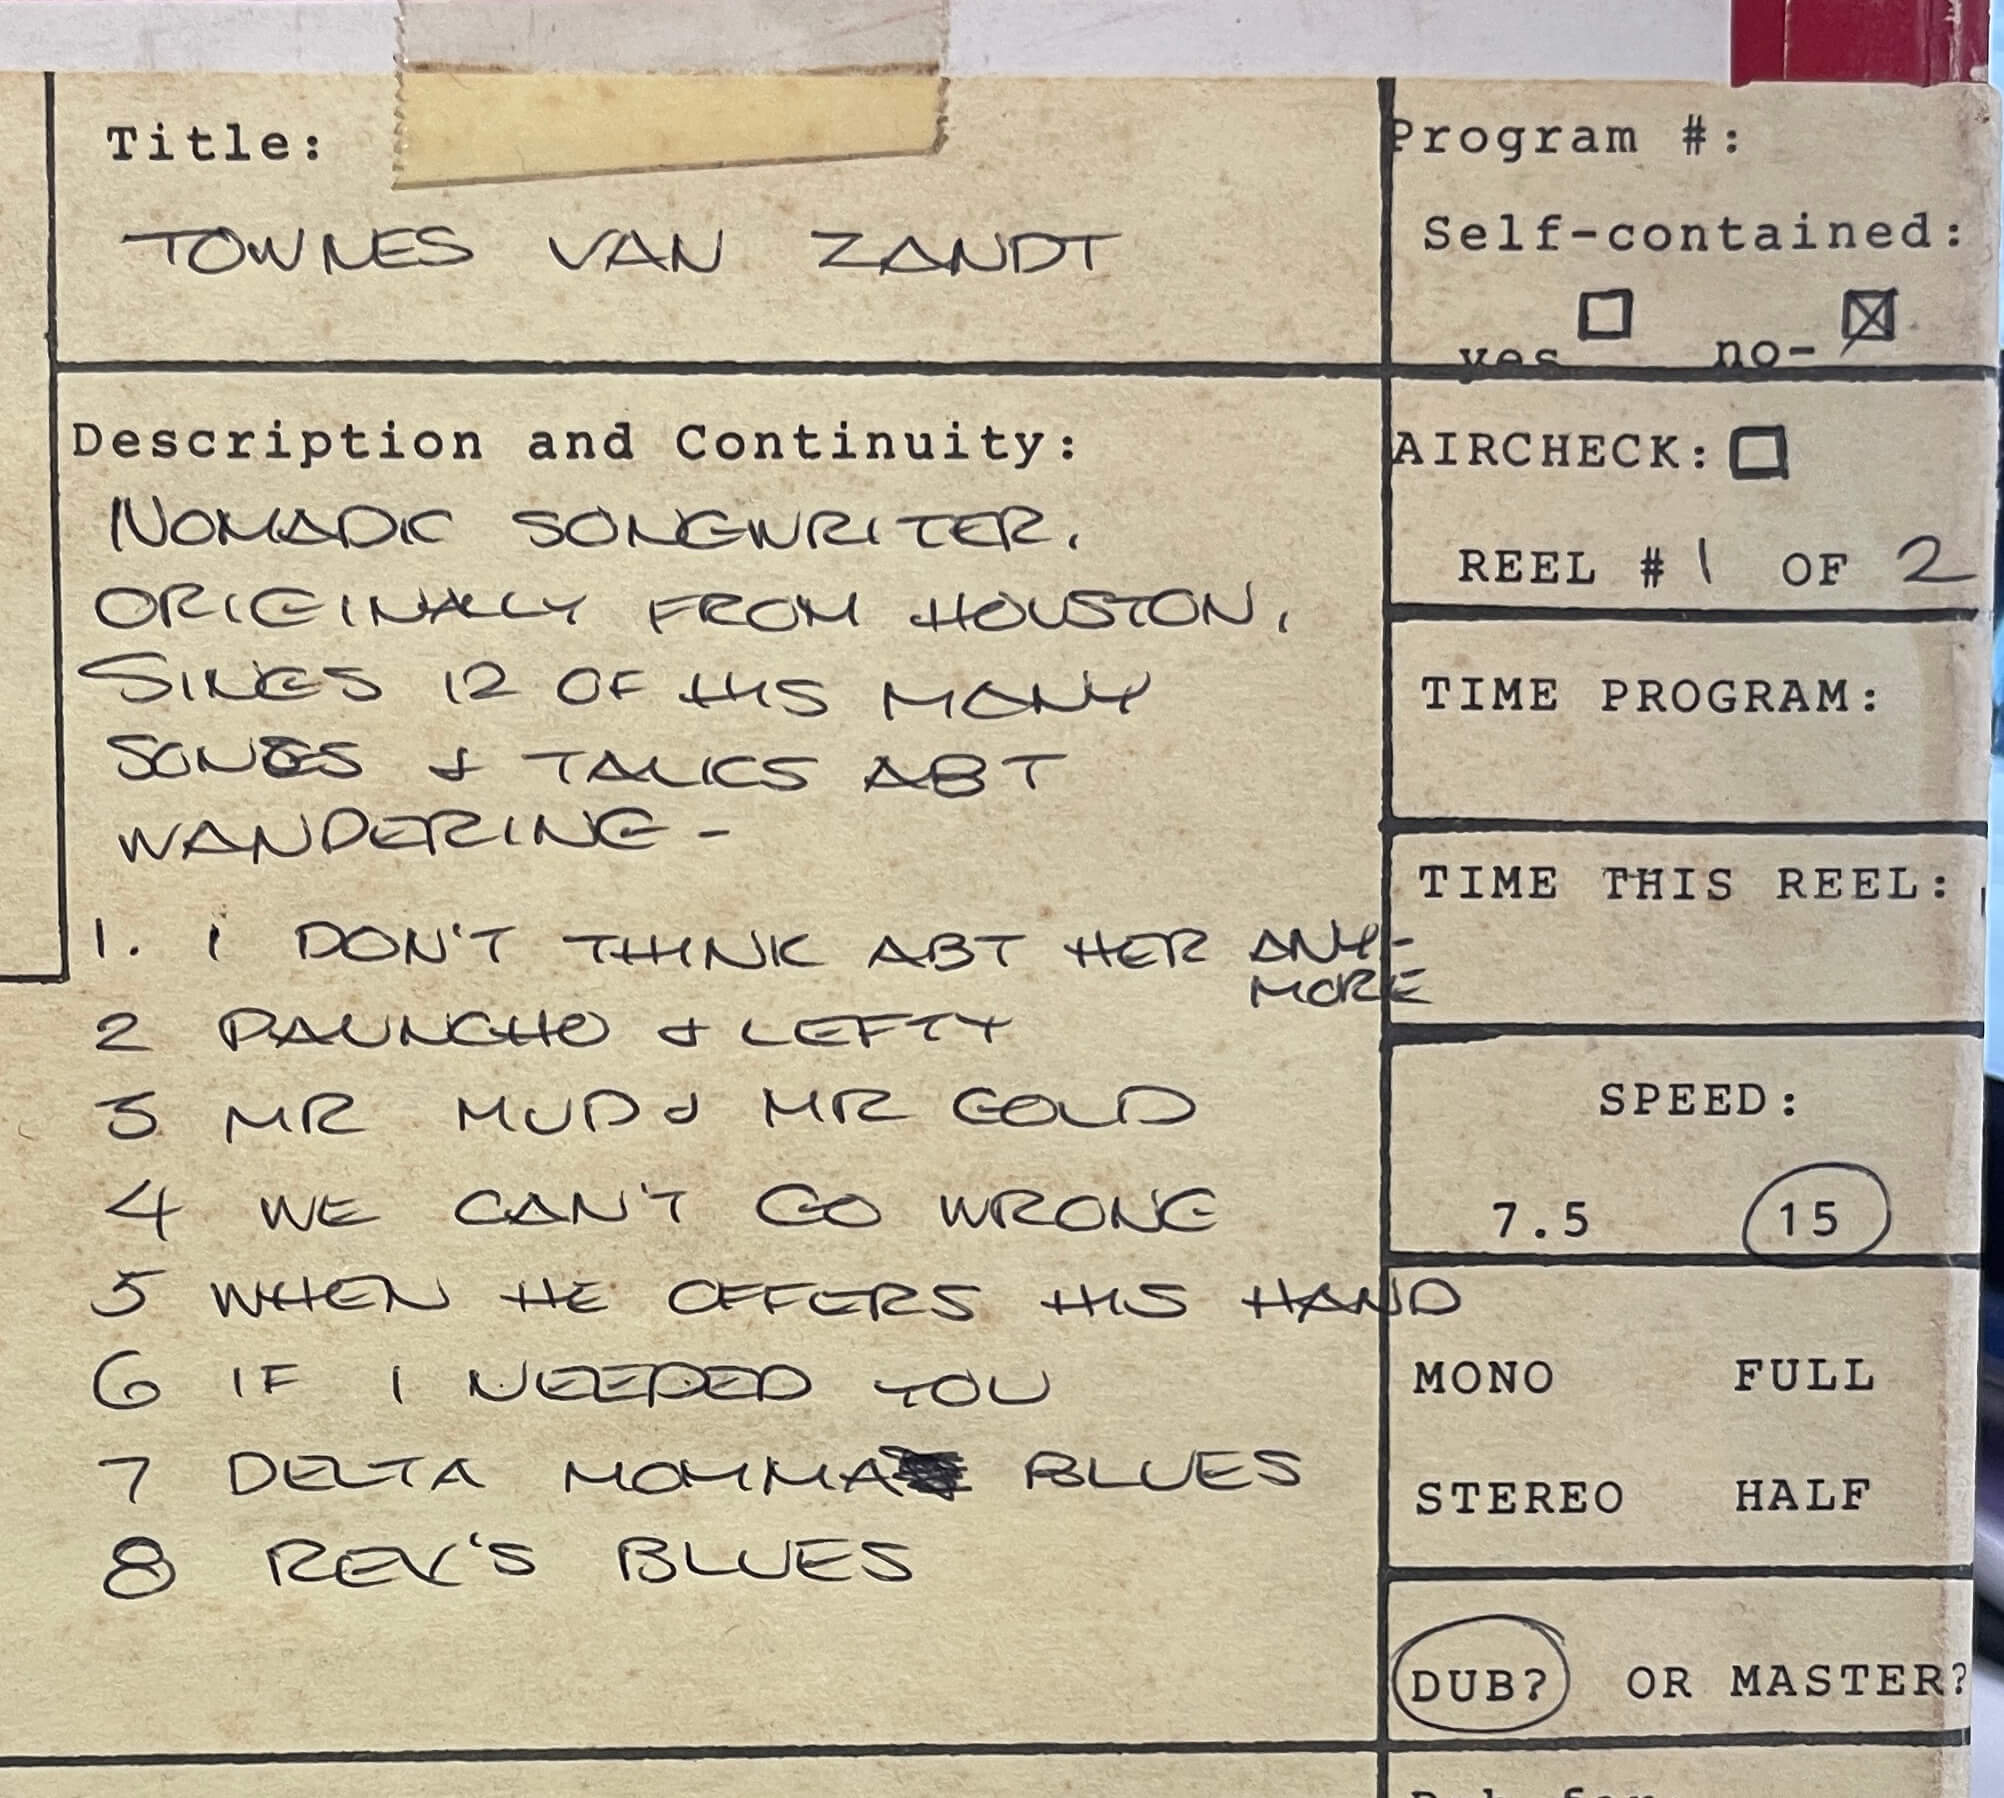 Title:
TOWNES VAN ZANDT
Description and Continuity:
NOMADIC SONGWRITER,
ORIGINALLY FROM HOUSTON,
SINGS 12 OF HIS MANY
SONGS & TALKS ABT
WANDERING -
1. I DON'T THINK ABT HER ANY-
MORE
2 PAUNCHO & LEFTY
3 MR MUD & MR GOLD
4 WE CAN'T GO WRONG
5 WHEN HE OFFERS HIS HAND
6 IF I NEEDED YOU
7 DELTA MOMMA BLUES
8 REV'S BLUES
Program #:
Self-contained:
yes no-
AIRCHECK:
REEL # 1 OF 2
TIME PROGRAM:
TIME THIS REEL:
SPEED:
7.5 15
MONO FULL
STEREO HALF
DUB? OR MASTER?